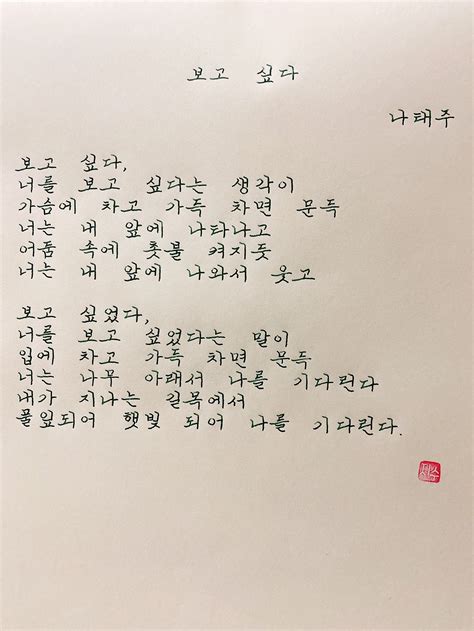 보고 싶다
나태주
보고 싶다,
너를 보고 싶다는 생각이
가슴에 차고 가득 차면 문득
너는 내 앞에 나타나고
어둠 속에 촛불 켜지듯
너는 내 앞에 나와서 웃고
보고 싶었다,
너를 보고 싶었다는 말이
입에 차고 가득 차면 문득
너는 나무 아래서 나를 기다린다
내가 지나는 길목에서
풀잎되어 햇빛 되어 나를 기다린다.